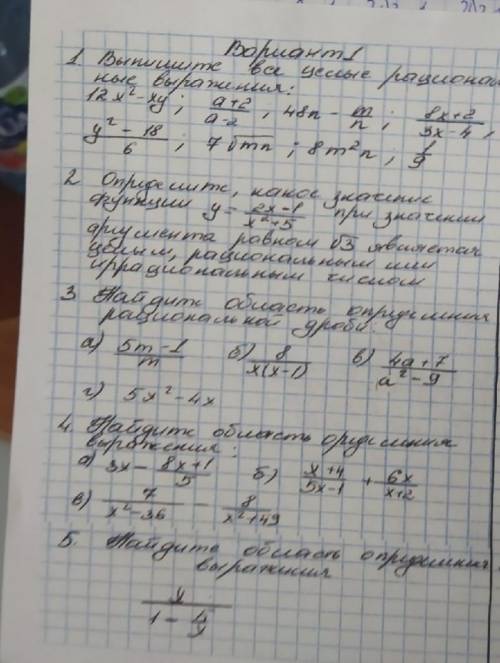 Вариант 1
1. Выпишите все целые рационал
ные выражения:
12x² - xy ; (a+2)/(a-2) , 48n - m/n ; (8x+2)/(3x-4) ,
(y² - 18)/6 ; 7√mn ; 8m²n ; 1/9
2 Определите, какое значение
функции y = (2x-1)/(x²+5) при значении
аргумента равном √3 является
целым, рациональным или
иррациональным числом
3 Найдите область определения
рациональной дроби:
а) (5m-1)/m б) 8/(x(x-1)) в) (4a+7)/(a²-9)
г) 5x² - 4x
4. Найдите область определения
выражения:
а) 3x - (8x+1)/5 б) (x+4)/(5x-1) + 6x/(x+2)
в) 7/(x²-36) - 8/(x²+49)
5. Найдите область определения
выражения
y/(1 - 4/y)